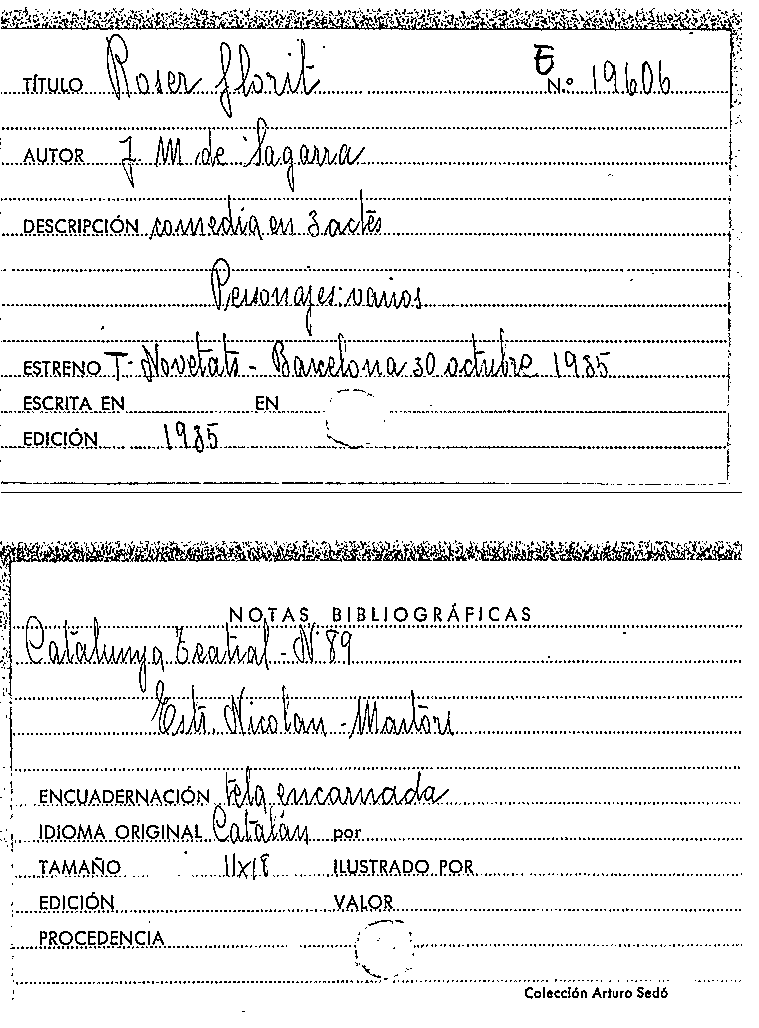 TÍTULO Roser Florit E N.º 19606
AUTOR J. M. de Sagarra
DESCRIPCIÓN comedia en 3 actes
Personajes: varios
ESTRENO T. Novetats - Barcelona 30 octubre 1935
ESCRITA EN EN
EDICIÓN 1935
NOTAS BIBLIOGRÁFICAS
Catalunya Teatral - Nº 89
Estr. Nicolau - Martori
ENCUADERNACIÓN tela encarnada
IDIOMA ORIGINAL Catalán por
TAMAÑO 11x18 ILUSTRADO POR
EDICIÓN VALOR
PROCEDENCIA
Colección Arturo Sedó